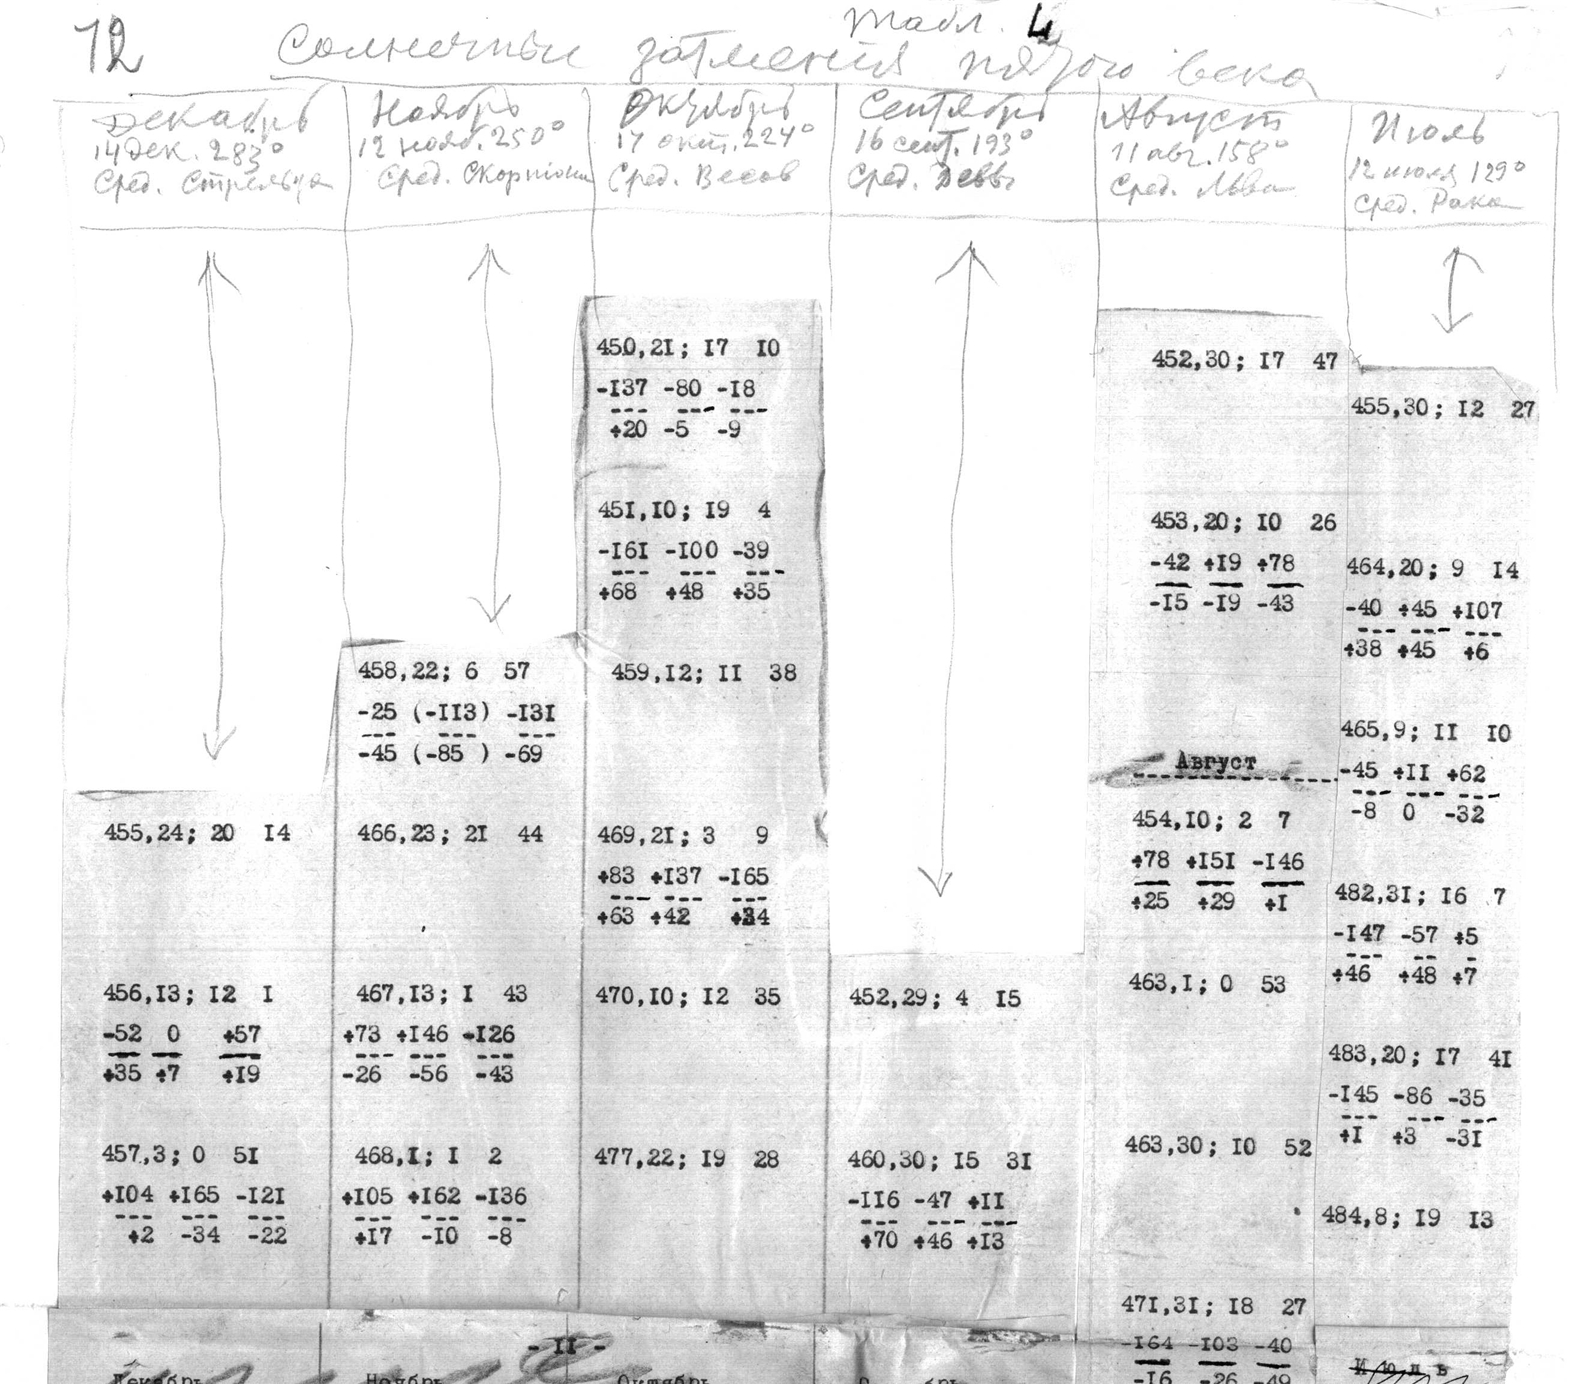 12
Табл. 4
Солнечные затмения пятого века
Декабрь
14 дек. 283°
Сред. Стрельца
455,24; 20 I4
456,I3; I2 I
-52 0 +57
+35 +7 +I9
457,3; 0 5I
+I04 +I65 -I2I
+2 -34 -22
Ноябрь
12 нояб. 250°
Сред. Скорпиона
458,22; 6 57
-25 (-II3) -I3I
-45 (-85 ) -69
466,23; 2I 44
467,I3; I 43
+73 +I46 -I26
-26 -56 -43
468,I; I 2
+I05 +I62 -I36
+I7 -I0 -8
Октябрь
17 окт. 224°
Сред. Весов
450,2I; I7 I0
-I37 -80 -I8
+20 -5 -9
45I,I0; I9 4
-I6I -I00 -39
+68 +48 +35
459,I2; II 38
469,2I; 3 9
+83 +I37 -I65
+63 +42 +34
470,I0; I2 35
477,22; I9 28
Сентябрь
16 сент. 193°
Сред. Девы
452,29; 4 I5
460,30; I5 3I
-II6 -47 +II
+70 +46 +I3
Август
11 авг. 158°
Сред. Льва
452,30; I7 47
453,20; I0 26
-42 +I9 +78
-I5 -I9 -43
Август
454,I0; 2 7
+78 +I5I -I46
+25 +29 +I
463,I; 0 53
463,30; I0 52
47I,3I; I8 27
-I64 -I03 -40
-I6 -26 -49
Июль
12 июля 129°
Сред. Рака
455,30; I2 27
464,20; 9 I4
-40 +45 +I07
+38 +45 +6
465,9; II I0
-45 +II +62
-8 0 -32
482,3I; I6 7
-I47 -57 +5
+46 +48 +7
483,20; I7 4I
-I45 -86 -35
+I +3 -3I
484,8; I9 I3
Июль
- II -
Декабрь Ноябрь Октябрь